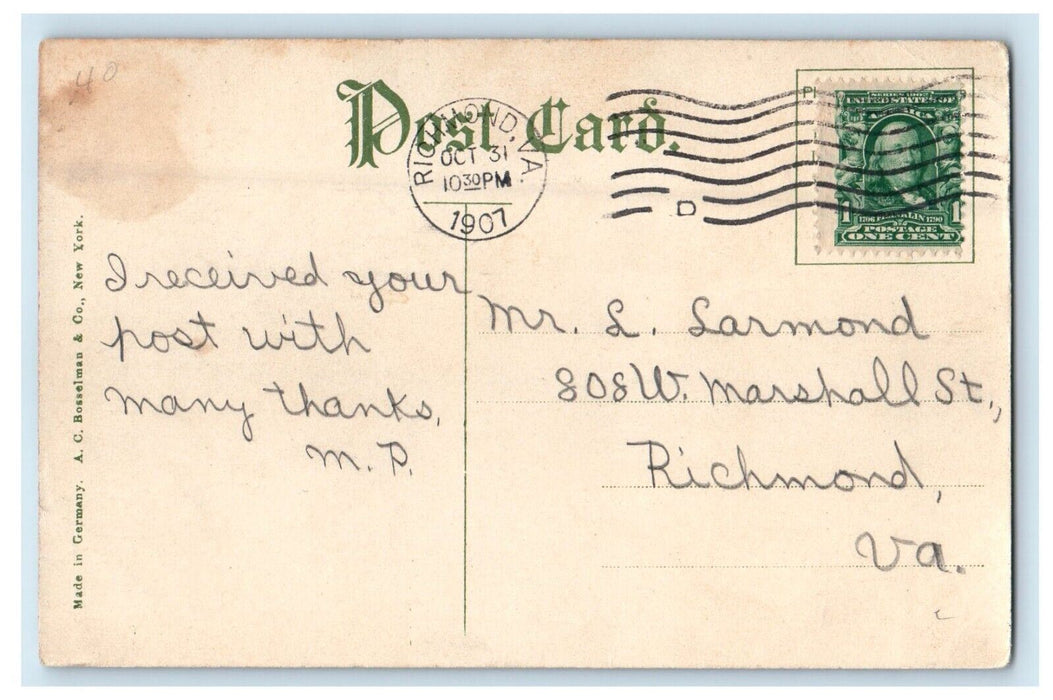 40
Post Card.
RICHMOND, VA.
OCT 31
1030 PM
1907
D
SERIES 1902
UNITED STATES OF
AMERICA
1706 FRANKLIN 1790
1 1
POSTAGE
ONE CENT
Made in Germany. A. C. Bosselman & Co., New York.
I received your
post with
many thanks,
M. P.
Mr. L. Larmond
808 W. Marshall St.,
Richmond,
Va.